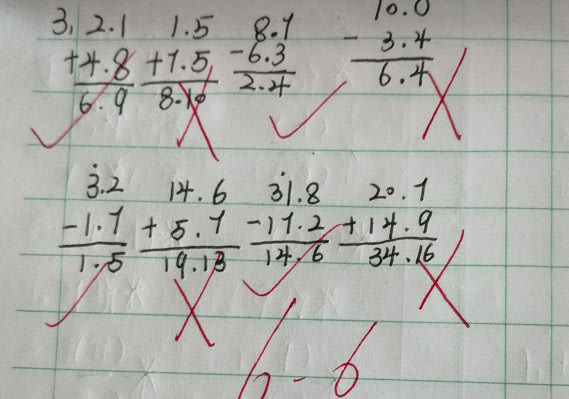 3, 2.1 1.5 8.7 10.0
+4.8 +7.5 -6.3 - 3.4
6.9 8.10 2.4 6.4
3.2 14.6 31.8 20.7
-1.7 + 5.7 -17.2 +14.9
1.5 19.13 14.6 34.16